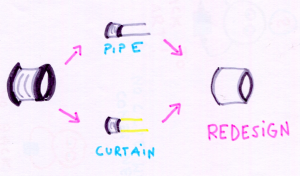 PIPE
CURTAIN
REDESIGN